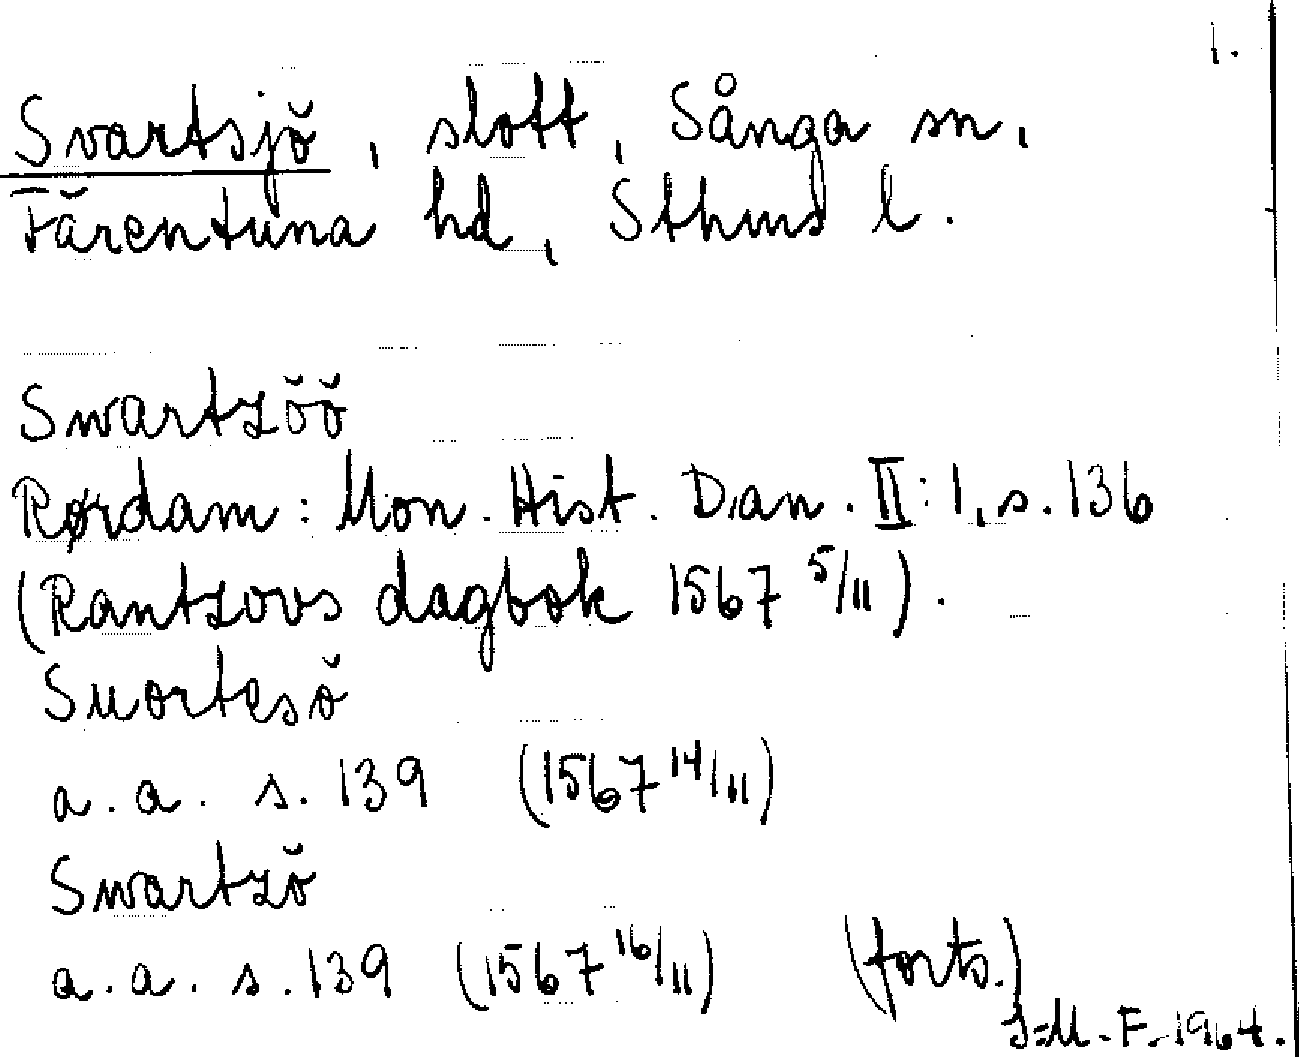 1.
Svartsjö, slott, Sånga sn,
Färentuna hd, Sthms l.
Swartzöö
Rørdam: Mon. Hist. Dan. II:1, s. 136
(Rantzovs dagbok 1567 5/11).
Suortesö
a. a. s. 139 (1567 14/11)
Swartzö
a. a. s. 139 (1567 16/11) (forts.)
J-M. F. 1964.